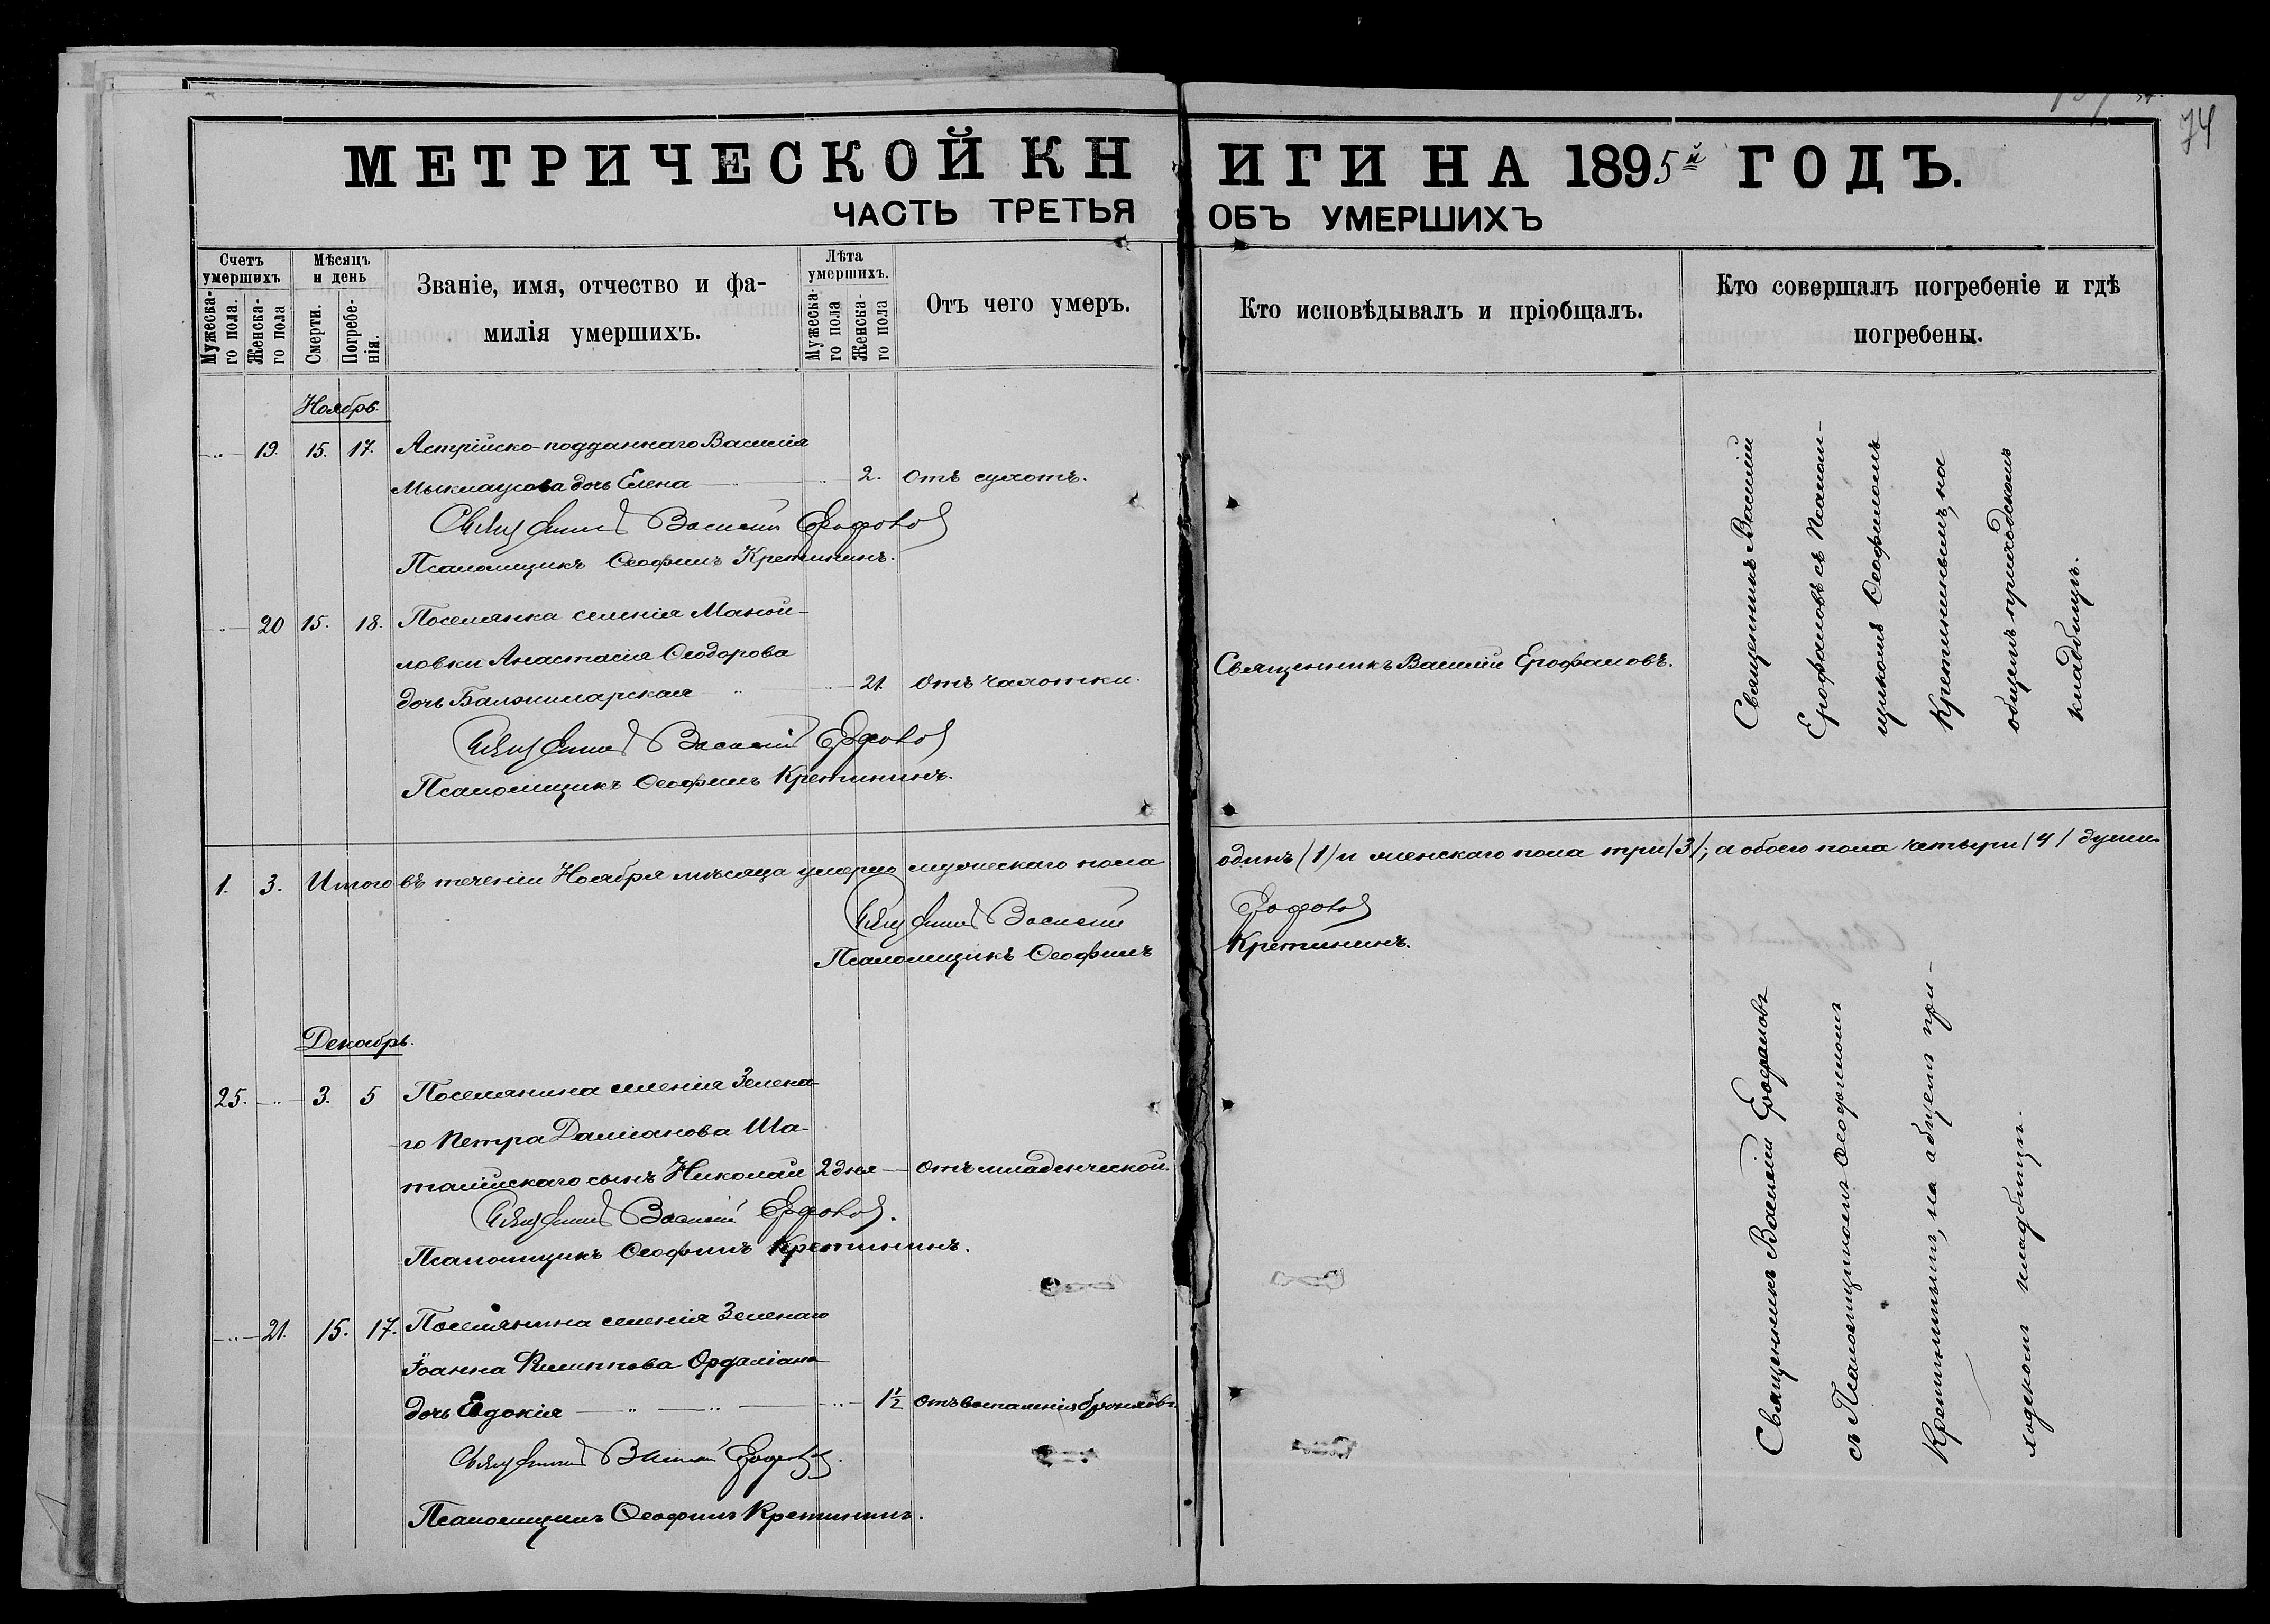 74
МЕТРИЧЕСКОЙ КНИГИ НА 1895й ГОДЪ.
ЧАСТЬ ТРЕТЬЯ ОБЪ УМЕРШИХЪ
Счетъ умершихъ
Мужеска-го пола.
Женска-го пола
Мѣсяцъ и день
Смерти.
Погребе-нія.
Званіе, имя, отчество и фа-
милія умершихъ.
Лѣта умершихъ.
Мужеска-го пола
Женска-го пола
Отъ чего умеръ.
Кто исповѣдывалъ и пріобщалъ.
Кто совершалъ погребеніе и гдѣ
погребены.
Ноябрь.
19. 15. 17. Астрійско-подданнаго Василія
Мыклаусова дочь Елена 2. Отъ сухотъ.
Священникъ Василій Ерофаловъ
Псаломщикъ Ѳеофилъ Кретининъ.
20 15. 18. Поселянка селенія Маной-
ловки Анастасія Ѳеодорова
дочь 21. Отъ чахотки.
Священникъ Василій Ерофаловъ.
Священникъ Василій Ерофаловъ
Псаломщикъ Ѳеофилъ Кретининъ.
Священникъ Василій
Ерофаловъ съ Псалом-
щикомъ Ѳеофиломъ
Кретининымъ, на
общемъ приходскомъ
кладбищѣ.
1. 3. Итого въ теченіи Ноября мѣсяца умерло мужескаго пола одинъ /1/ и женскаго пола три /3/; а обоего пола четыри /4/ души.
Священникъ Василій Ерофаловъ
Псаломщикъ Ѳеофилъ Кретининъ.
Декабрь.
25. 3. 5 Поселянина селенія Зелена-
го Петра Даміанова Ша-
сынъ Николай 2 дня Отъ младенческой.
Священникъ Василій Ерофаловъ.
Псаломщикъ Ѳеофилъ Кретининъ.
21. 15. 17. Поселянина селенія Зеленаго
Іоанна Филиппова
дочь Евдокія 1½ Отъ воспаленія бронховъ.
Священникъ Василій Ерофаловъ.
Псаломщикъ Ѳеофилъ Кретининъ.
Священникъ Василій Ерофаловъ
съ Псаломщикомъ Ѳеофиломъ
Кретининымъ, на общемъ при-
ходскомъ кладбищѣ.